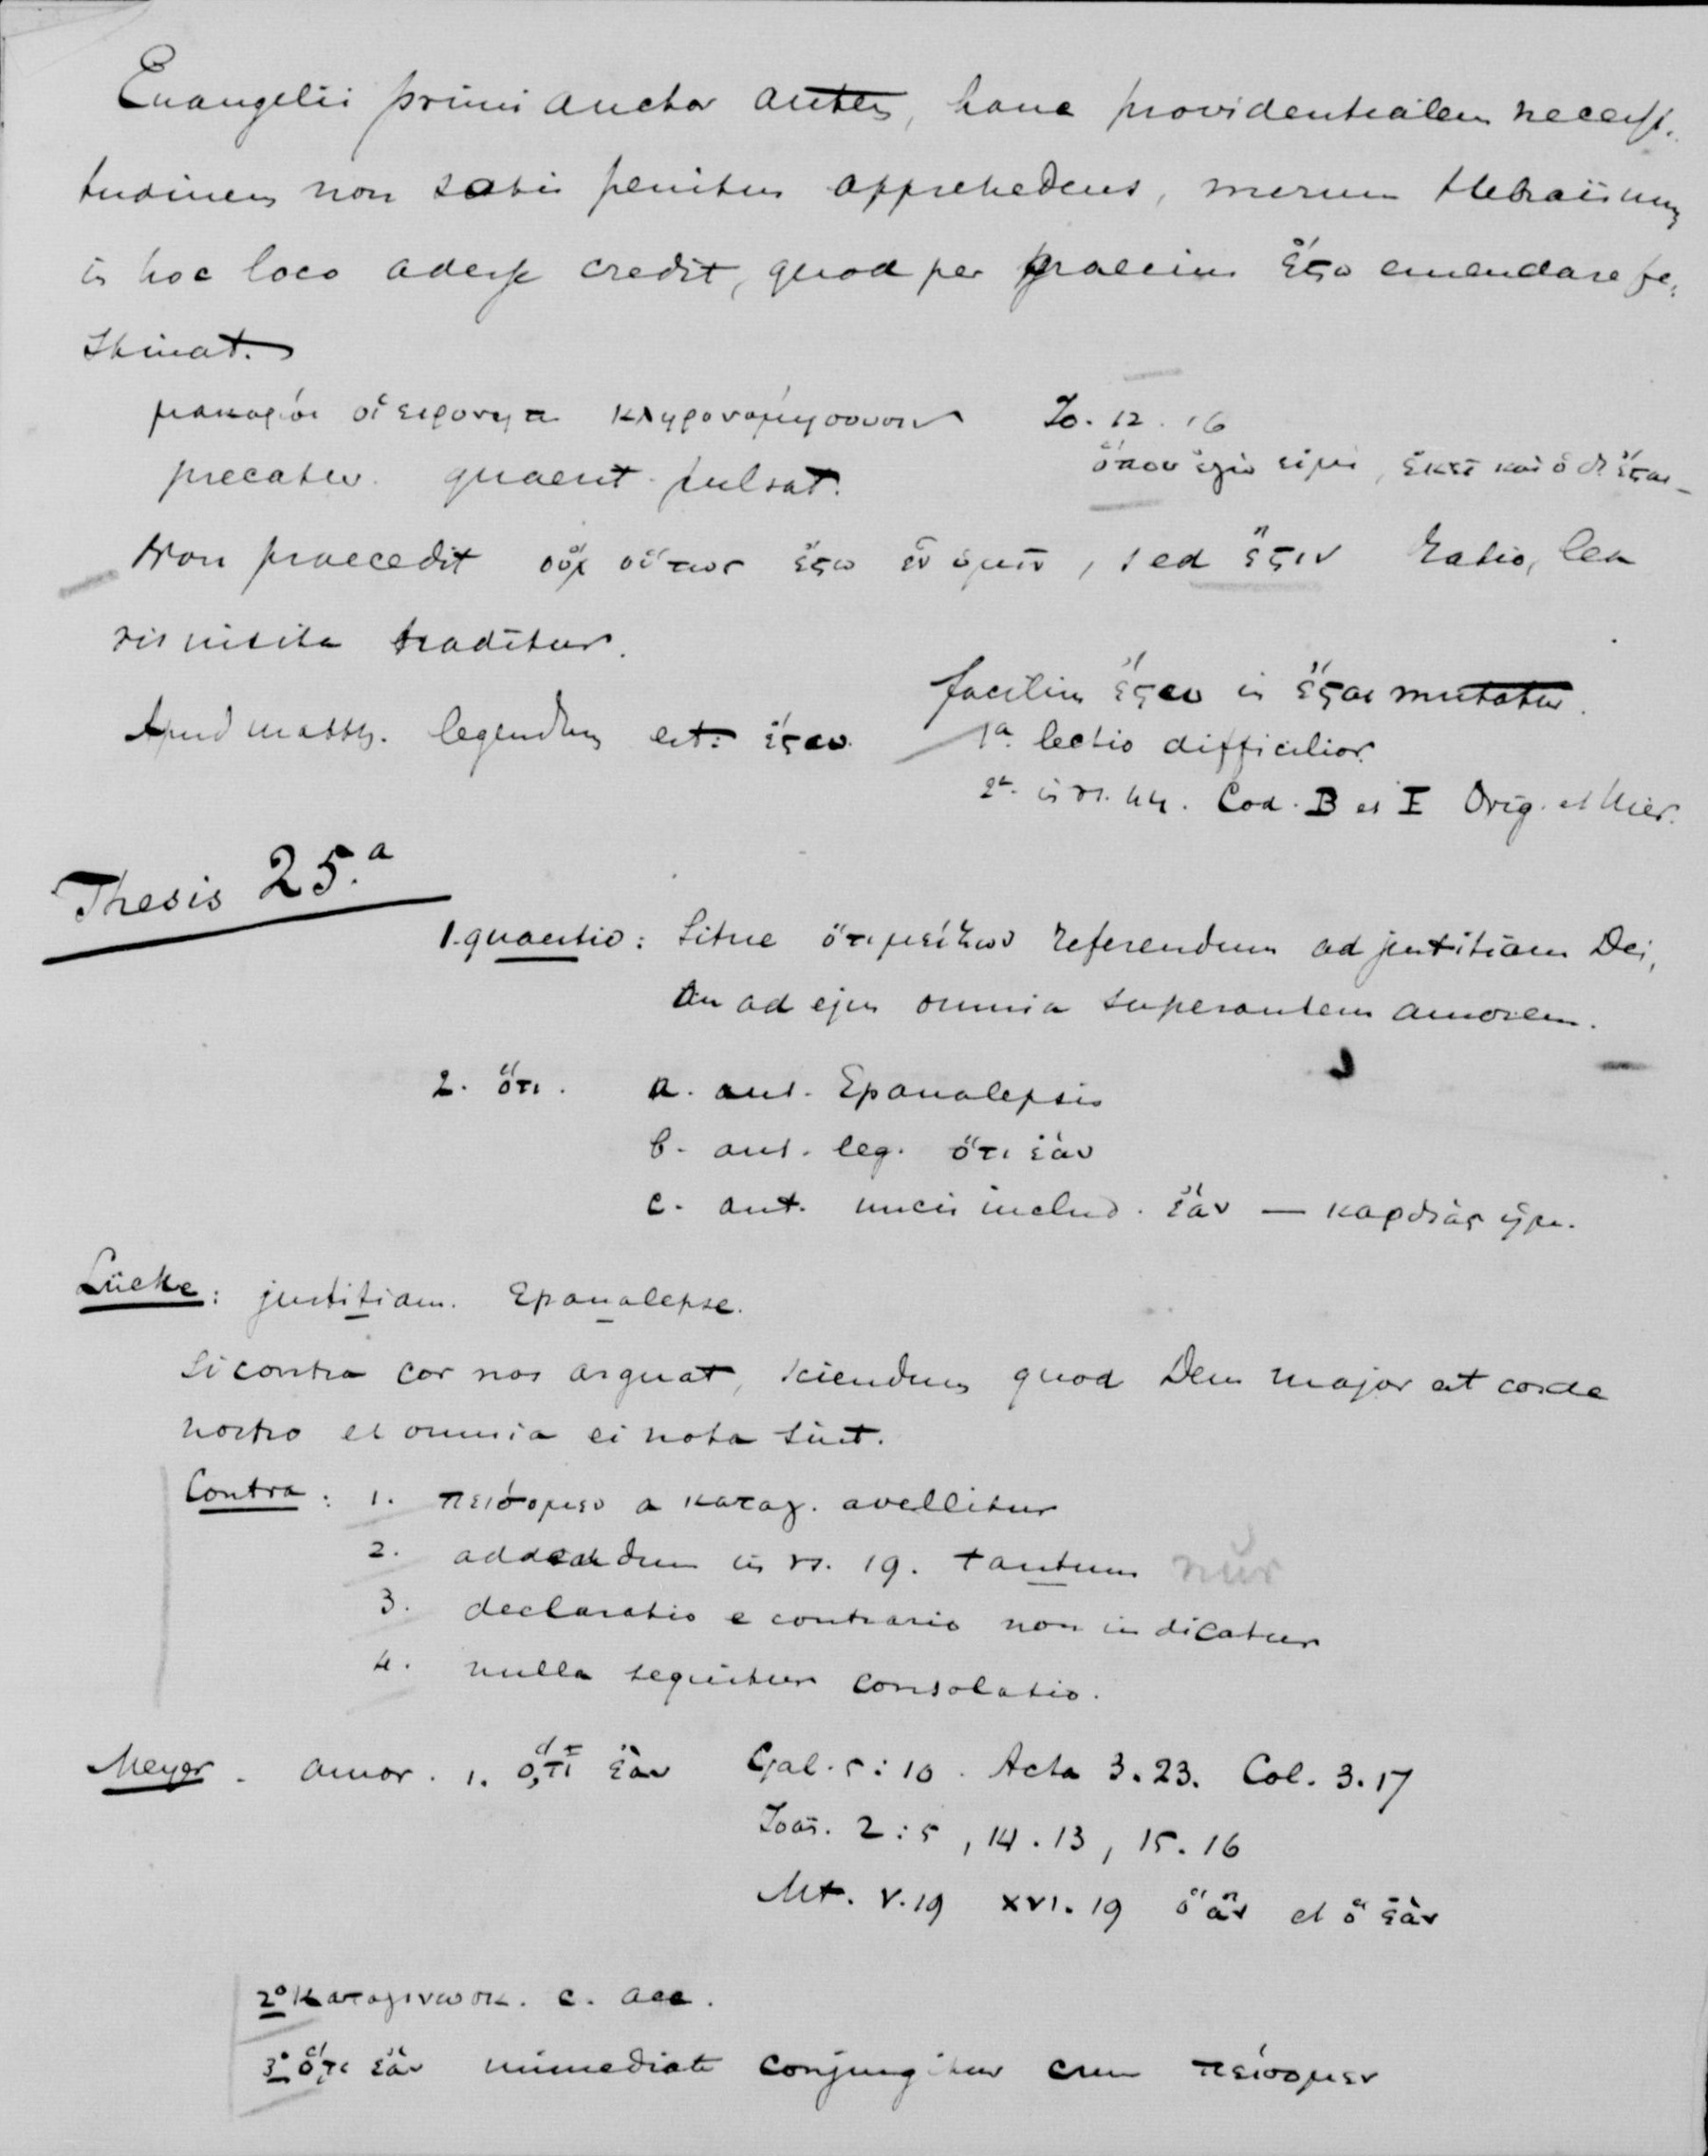 Evangelii primi auctor autem, hanc providentialem necessi-
tudinem non satis penitus apprehedens, merum Hebraïsmum
in hoc loco adesse credit, quod per graecum ἔςω emendare fe-
stinat.
μακαρίοι οἱ ειρηνηπ κληρονομήσουσιν Io. 12. 16
precatur. quaerit. pulsat. ὅπου ἐγώ εἰμι, ἐκεῖ καὶ ὁ δ. ἔςαι
Non praecedit οὐχ οὕτως ἔςω ἐν ὑμῖν, sed ἔςιν ratio, lex
insita traditur.
facilius ἔςω in ἔςαι mutatur.
Apud Matth. legendum est: ἔςαι. 1ª. lectio difficilior.
2ª. in vs. 44. Cod. B et Σ Orig. et Hier.
Thesis 25.ª
1. quaestio: Sitne ὅτι μείζων referendum ad justitiam Dei,
An ad ejus omnia superantem amorem.
2. ὅτι. a. aut. Epanalepsis
b. aut. leg. ὅτι ἐὰν
c. aut. uncis includ. ἐὰν — καρδίας ἡμ.
Lücke: justitiam. Epanalepse.
Si contra cor nos arguat, sciendum quod Deus major est corde
nostro et omnia ei nota sint.
Contra: 1. πείσομεν a καταγ. avellitur
2. addendum in vs. 19. tantum nur
3. declaratio e contrario non indicatur
4. nulla sequitur consolatio.
Meyer. amor. 1. ὅ,τι ἐὰν Gal. 5:10. Acta 3.23. Col. 3.17
Joãn. 2:5, 14.13, 15.16
Mt. V.19 XVI.19 ὃ ἂν et ὃ ἐὰν
2º καταγινωσκ. c. acc.
3º ὅ,τι ἐὰν immediate conjungitur cum πείσομεν